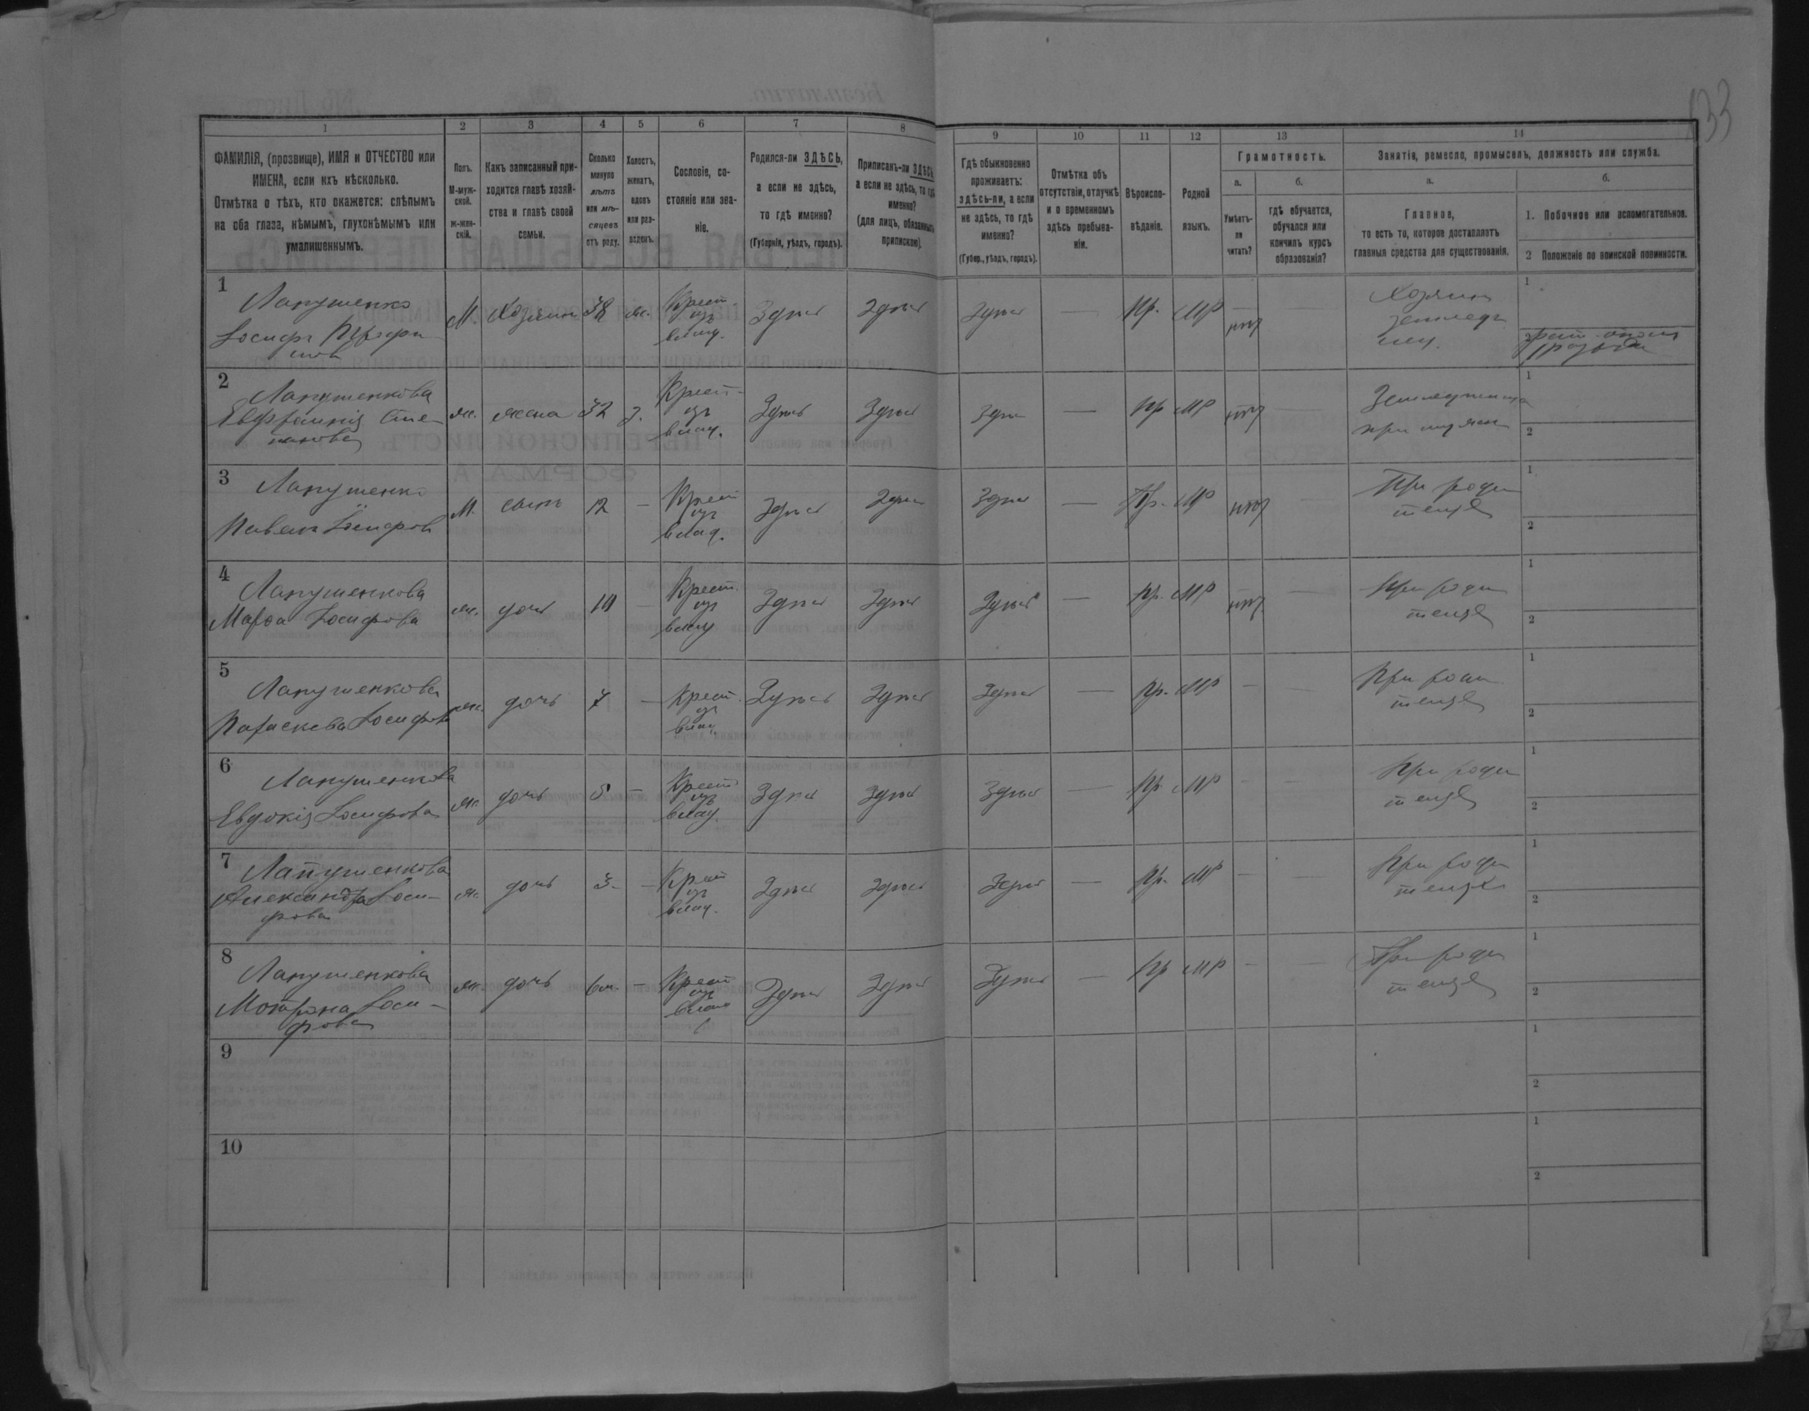 133
1
2
3
4
5
6
7
8
9
10
11
12
13
14
ФАМИЛІЯ, (прозвище), ИМЯ и ОТЧЕСТВО или
ИМЕНА, если ихъ нѣсколько.
Отмѣтка о тѣхъ, кто окажется: слѣпымъ
на оба глаза, нѣмымъ, глухонѣмымъ или
умалишеннымъ.
Полъ.
М-муж-
ской.
ж-жен-
скій.
Какъ записанный при-
ходится главѣ хозяй-
ства и главѣ своей
семьи.
Сколько
минуло
лѣтъ
или мѣ-
сяцевъ
отъ роду.
Холостъ,
женатъ,
вдовъ
или раз-
веденъ.
Сословіе, со-
стояніе или зва-
ніе.
Родился-ли ЗДѢСЬ,
а если не здѣсь,
то гдѣ именно?
(Губернія, уѣздъ, городъ).
Приписанъ-ли ЗДѢСЬ,
а если не здѣсь, то гдѣ
именно?
(для лицъ, обязанныхъ
припискою).
Гдѣ обыкновенно
проживаетъ:
здѣсь-ли, а если
не здѣсь, то гдѣ
именно?
(Губер., уѣздъ, городъ).
Отмѣтка объ
отсутствіи, отлучкѣ
и о временномъ
здѣсь пребыва-
ніи.
Вѣроиспо-
вѣданіе.
Родной
языкъ.
Грамотность.
а.
Умѣетъ-
ли
читать?
б.
гдѣ обучается,
обучался или
кончилъ курсъ
образованія?
Занятіе, ремесло, промыселъ, должность или служба.
а.
Главное,
то есть то, которое доставляетъ
главныя средства для существованія.
б.
1. Побочное или вспомогательное.
2 Положеніе по воинской повинности.
1
Лапушенко
Іосифъ
М.
Хозяин
38
ж.
Крест.
изъ
влад.
Здѣсь
Здѣсь
Здѣсь
—
Пр.
МР
—
нѣт
—
Хозяин
земледѣ
лец.
1
2
2
Лапушенкова
Евфимія Сте-
панова
ж.
жена
32
з.
Крест.
изъ
влад.
Здѣсь
Здѣсь
Здѣсь
—
Пр
МР
нѣт
—
при мужѣ
1
2
3
Лапушенко
Павелъ Іосифов
М.
сынъ
12
—
Крест
изъ
влад.
Здѣсь
Здѣсь
Здѣсь
—
Пр.
МР
нѣт
—
При роди
теляхъ
1
2
4
Лапушенкова
Марѳа Іосифова
ж.
дочь
10
—
Крест.
изъ
влад
Здѣсь
Здѣсь
Здѣсь
—
Пр.
МР
нѣт
—
При роди
теляхъ
1
2
5
Лапушенкова
Параскева Іосифова
ж.
дочь
7
—
Крест
изъ
влад.
Здѣсь
Здѣсь
Здѣсь
—
Пр.
МР
—
—
При роди
теляхъ
1
2
6
Лапушенкова
Евдокія Іосифова
ж
дочь
5
—
Крест
изъ
влад.
Здѣсь
Здѣсь
Здѣсь
—
Пр
МР
—
—
При роди
теляхъ
1
2
7
Лапушенкова
Александра Іоси-
фова
ж.
дочь
3
—
Крест
изъ
влад.
Здѣсь
Здѣсь
Здѣсь
—
Пр.
МР
—
—
При роди
теляхъ
1
2
8
Лапушенкова
Мотрона Іоси-
фова
ж.
дочь
6 м.
—
Крест
изъ
влад
Здѣсь
Здѣсь
Здѣсь
—
Пр
МР
—
—
При роди
теляхъ
1
2
9
1
2
10
1
2